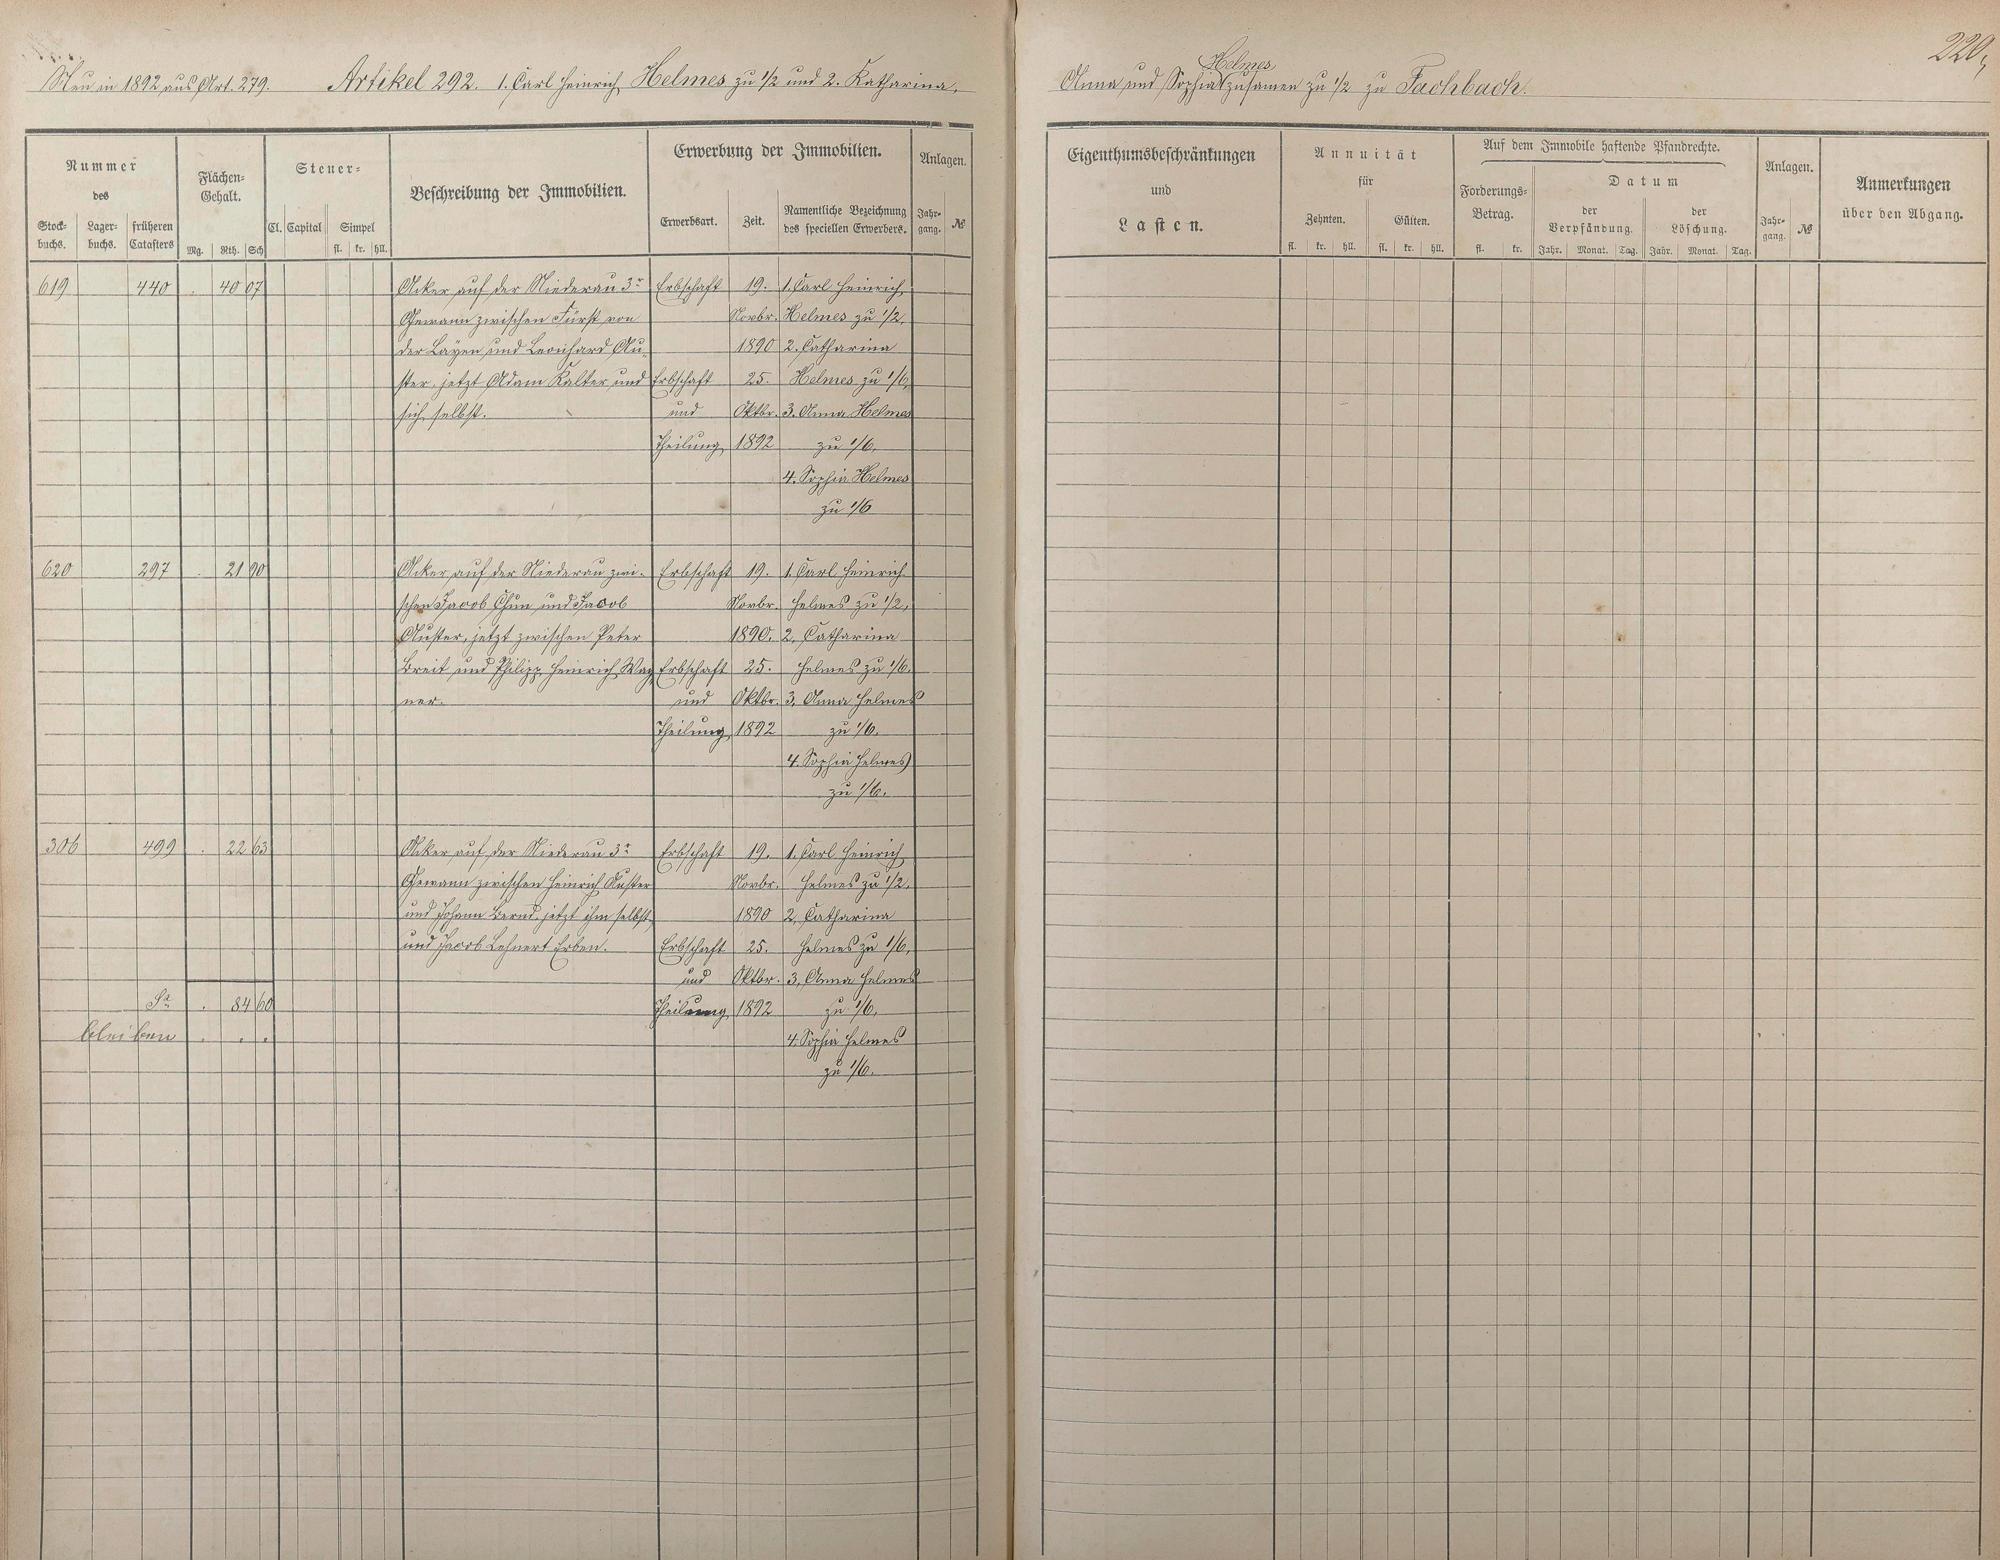 220,
Neu in 1892 aus Art. 279. Artikel 292. 1. Carl Heinrich Helmes zu 1/2 und 2. Katharina,
Helmes
Anna und Sophia zusamen zu 1/2 zu Fachbach.
Nummer
des
Stock-
buchs.
Lager-
buchs.
früheren
Catasters
Flächen-
Gehalt.
Mg. Rth. Sch
Steuer-
Cl. Capital Simpel
fl. kr. hll.
Beschreibung der Immobilien.
Erwerbung der Immobilien.
Erwerbsart. Zeit.
Namentliche Bezeichnung
des speciellen Erwerbers.
Anlagen.
Jahr-
gang.
№
Eigenthumsbeschränkungen
und
Lasten.
Annuität
für
Zehnten. Gülten.
fl. kr. hll. fl. kr. hll.
Auf dem Immobile haftende Pfandrechte.
Forderungs-
Betrag.
fl. kr.
Datum
der
Verpfändung.
Jahr. Monat. Tag.
der
Löschung.
Jahr. Monat. Tag.
Anlagen.
Jahr-
gang.
№
Anmerkungen
über den Abgang.
619 440 . 40 07 Acker auf der Niederau 3r Erbschaft 19. 1. Carl Heinrich
Gewann zwischen Fürst von Novbr. Helmes zu 1/2,
der Layen und Leonhard Au- 1890 2. Catharina
ster, jetzt Adam Kalter und Erbschaft 25. Helmes zu 1/6,
sich selbst. und Oktbr. 3. Anna Helmes
Theilung 1892 zu 1/6,
4. Sophia Helmes
zu 1/6
620 297 . 21 90 Acker auf der Niederau zwi- Erbschaft 19. 1. Carl Heinrich
schen Jacob Chun und Jacob Novbr. Helmes zu 1/2,
Auster, jetzt zwischen Peter 1890. 2, Catharina
Breit und Philipp Heinrich Wag- Erbschaft 25. Helmes zu 1/6.
ner. und Oktbr. 3, Anna Helmes
Theilung 1892 zu 1/6.
4. Sophia Helmes
zu 1/6.
306 499 . 22 63 Acker auf der Niederau 3r Erbschaft 19. 1. Carl Heinrich
Gewann zwischen Heinrich Auster Novbr. Helmes zu 1/2,
und Johann Bernd, jetzt ihm selbst 1890 2, Catharina
und Jacob Lehnert Erben. Erbschaft 25. Helmes zu 1/6,
und Oktbr. 3, Anna Helmes
Sa . 84 60 Theilung 1892 zu 1/6,
bleiben . . . 4. Sophia Helmes
zu 1/6.